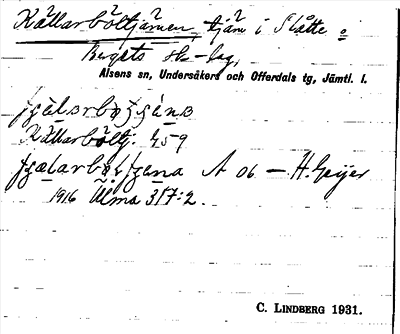 Källarböltjärnen, tjärn i Slåtte o
Bergets sk-lag,
Alsens sn, Undersåkers och Offerdals tg, Jämtl. l.
Källarböltj. 459
A 06 — H. Geijer
1916 Ulma 317:2.
C. LINDBERG 1931.